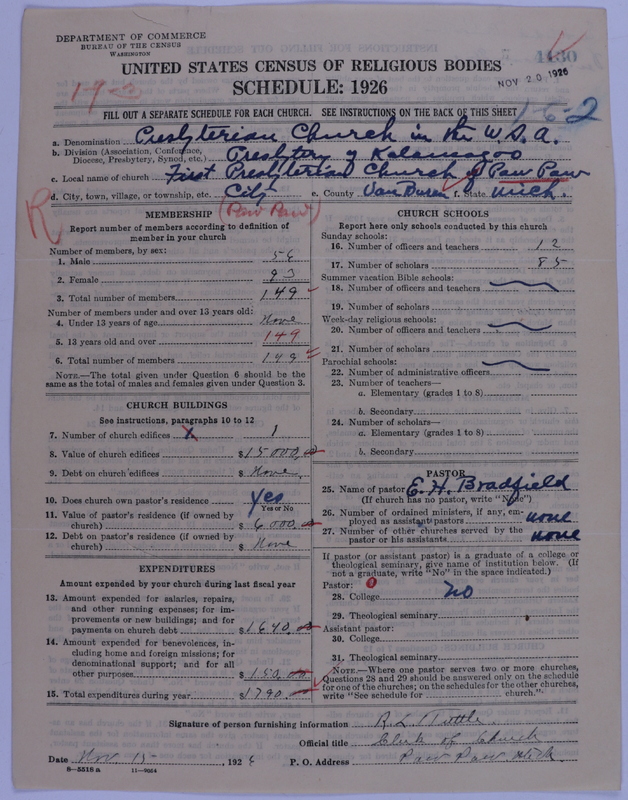 DEPARTMENT OF COMMERCE
BUREAU OF THE CENSUS
WASHINGTON
1130
UNITED STATES CENSUS OF RELIGIOUS BODIES
NOV 20 1926
SCHEDULE: 1926
19-2
FILL OUT A SEPARATE SCHEDULE FOR EACH CHURCH. SEE INSTRUCTIONS ON THE BACK OF THIS SHEET
1-6-2
a. Denomination Presbyterian Church in the U.S.A.
b. Division (Association, Conference, Diocese, Presbytery, Synod, etc.) Presbytery of Kalamazoo
c. Local name of church First Presbyterian Church of Paw Paw
d. City, town, village, or township, etc. City e. County Van Buren f. State Mich.
R
(Paw Paw)
MEMBERSHIP
Report number of members according to definition of
member in your church
Number of members, by sex:
1. Male 56
2. Female 93
3. Total number of members 149
Number of members under and over 13 years old:
4. Under 13 years of age None
5. 13 years old and over 149
6. Total number of members 149
NOTE.—The total given under Question 6 should be the
same as the total of males and females given under Question 3.
CHURCH BUILDINGS
See instructions, paragraphs 10 to 12
7. Number of church edifices x 1
8. Value of church edifices $15000.00
9. Debt on church edifices $ None
10. Does church own pastor's residence Yes
Yes or No
11. Value of pastor's residence (if owned by
church) $6,000.00
12. Debt on pastor's residence (if owned by
church) $ None
EXPENDITURES
Amount expended by your church during last fiscal year
13. Amount expended for salaries, repairs,
and other running expenses; for im-
provements or new buildings; and for
payments on church debt $1640.00
14. Amount expended for benevolences, in-
cluding home and foreign missions; for
denominational support; and for all
other purposes $150.00
15. Total expenditures during year $1790.00
CHURCH SCHOOLS
Report here only schools conducted by this church
Sunday schools:
16. Number of officers and teachers 12
17. Number of scholars 85
Summer vacation Bible schools:
18. Number of officers and teachers
19. Number of scholars
Week-day religious schools:
20. Number of officers and teachers
21. Number of scholars
Parochial schools:
22. Number of administrative officers
23. Number of teachers—
a. Elementary (grades 1 to 8)
b. Secondary
24. Number of scholars—
a. Elementary (grades 1 to 8)
b. Secondary
PASTOR
25. Name of pastor E. H. Bradfield
(If church has no pastor, write "None")
26. Number of ordained ministers, if any, em-
ployed as assistant pastors none
27. Number of other churches served by the
pastor or his assistants none
If pastor (or assistant pastor) is a graduate of a college or
theological seminary, give name of institution below. (If
not a graduate, write "No" in the space indicated.)
Pastor:
28. College no
29. Theological seminary
Assistant pastor:
30. College
31. Theological seminary
NOTE.—Where one pastor serves two or more churches,
Questions 28 and 29 should be answered only on the schedule
for one of the churches; on the schedules for the other churches,
write "See schedule for church."
Signature of person furnishing information R. L. Tuttle
Official title Clerk of Church
Date Nov 15 1926 P. O. Address Paw Paw Mich
8—5518 a 11—9054